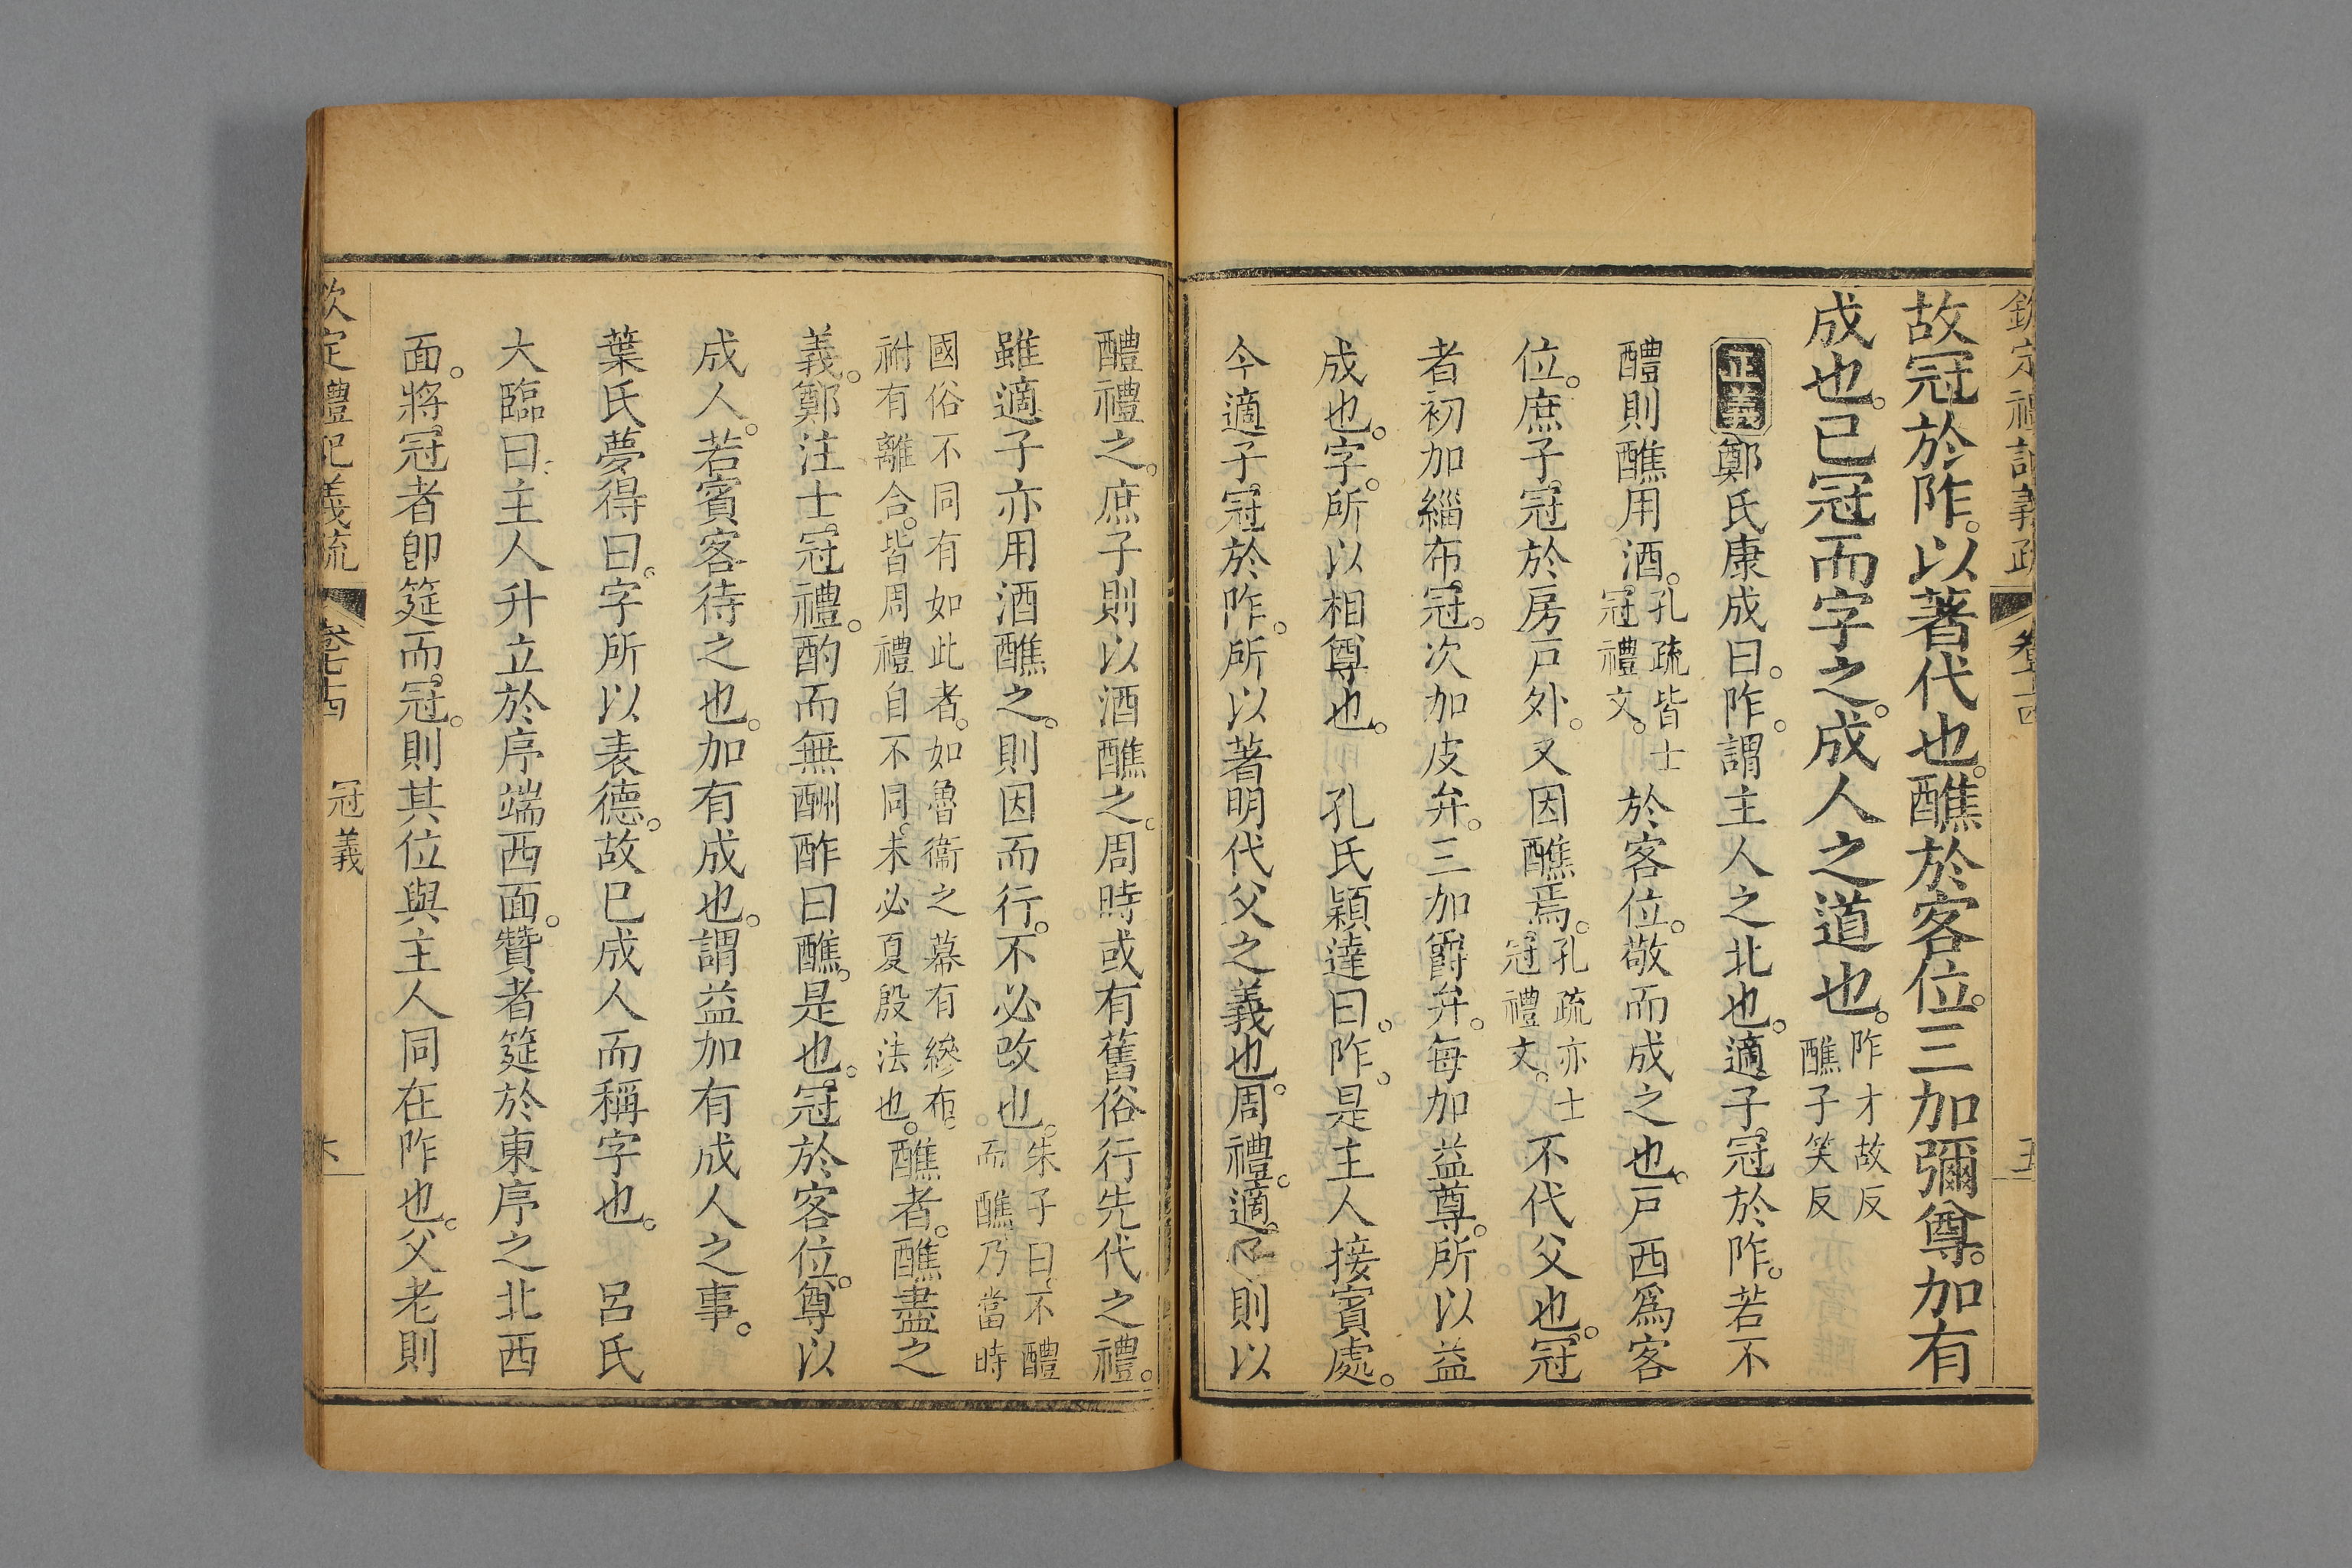 欽定禮記義疏 卷七十四 五
故冠於阼。以著代也。醮於客位。三加彌尊。加有
成也。已冠而字之。成人之道也。阼才故反醮子笑反
正義鄭氏康成曰。阼。謂主人之北也。適子冠於阼。若不
醴則醮用酒。孔疏皆士冠禮文。於客位。敬而成之也。戶西爲客
位。庶子冠於房戶外。又因醮焉。孔疏亦士冠禮文。不代父也。冠
者初加緇布冠。次加皮弁。三加爵弁。每加益尊。所以益
成也。字。所以相尊也。 孔氏穎達曰。阼。是主人接賓處。
今適子冠於阼。所以著明代父之義也。周禮。適子則以
醴禮之。庶子則以酒醮之。周時或有舊俗行先代之禮。
雖適子亦用酒醮之。則因而行。不必改也。朱子曰。不醴而醮。乃當時
國俗不同有如此者。如魯衞之幕有縿布。祔有離合。皆周禮自不同。未必夏殷法也。醮者。醮盡之
義。鄭注士冠禮。酌而無酬酢曰醮。是也。冠於客位。尊以
成人。若賓客待之也。加有成也。謂益加有成人之事。
葉氏夢得曰。字所以表德。故已成人而稱字也。 呂氏
大臨曰。主人升立於序端西面。贊者筵於東序之北西
面。將冠者卽筵而冠。則其位與主人同在阼也。父老則
欽定禮記義疏 卷七十四 冠義